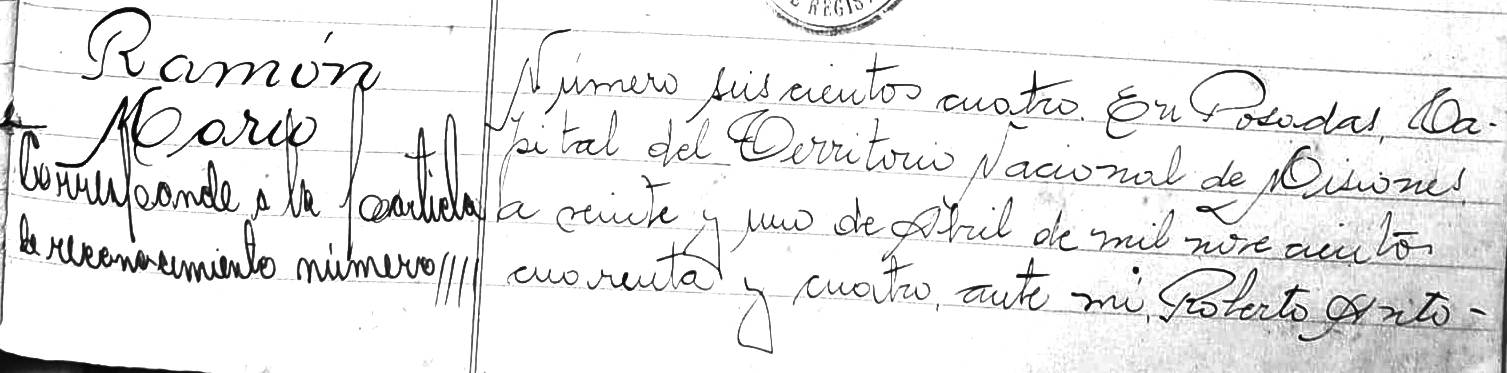 E REGIS
Ramón
Mario
Corresponde a la partida
de reconocimiento número ////
Número seiscientos cuatro. En Posadas, Ca-
pital del Territorio Nacional de Misiones
a veinte y uno de Abril de mil novecientos
cuarenta y cuatro, ante mi, Roberto Anto-